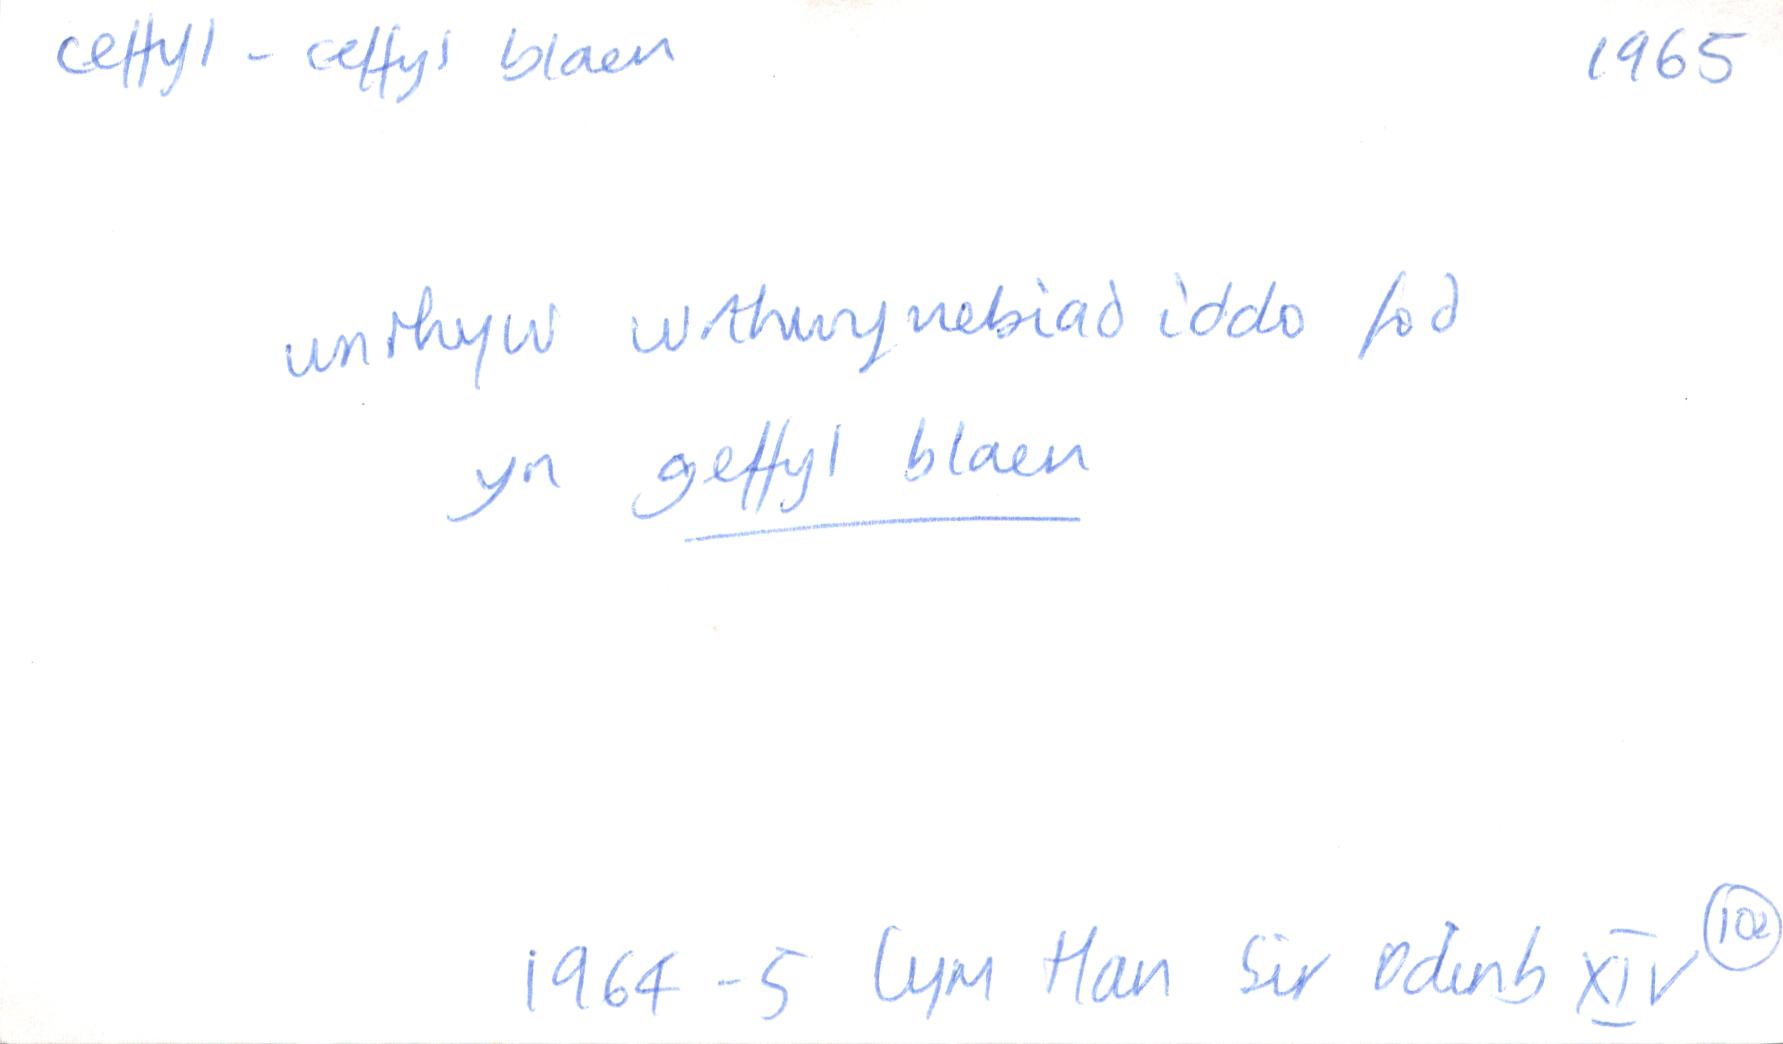 ceffyl - ceffyl blaen 1965
unrhyw wrthwynebiad iddo fod
yn geffyl blaen
1964-5 Cym Han Sir Ddinb XIV 102